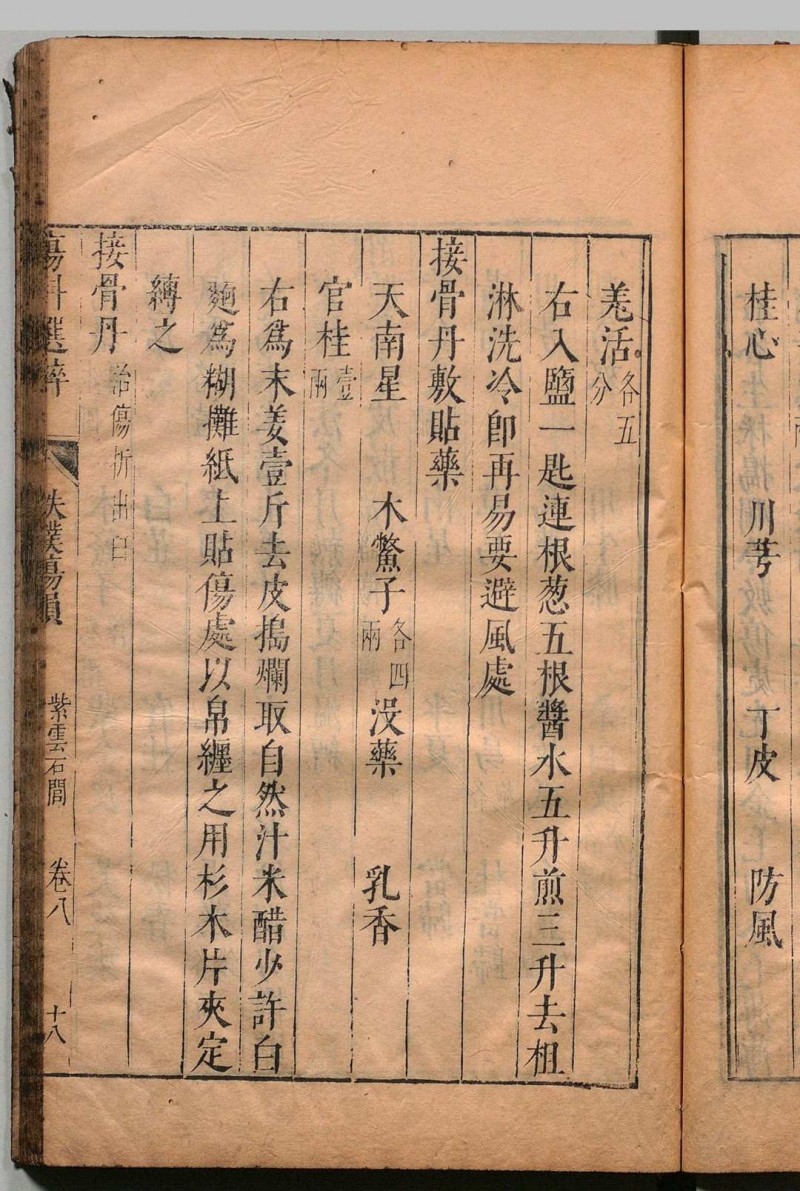 桂心　川芎　丁皮　防風
羗活各五分
右入鹽一匙連根葱五根醬水五升煎三升去柤
淋洗冷卽再易要避風處
接骨丹敷貼藥
天南星　木鱉子各四兩　沒藥　乳香
官桂壹兩
右爲末姜壹斤去皮搗爛取自然汁米醋少許白
麪爲糊攤紙上貼傷處以帛纏之用杉木片夾定
縛之
接骨丹治傷折出臼
傷科選粹　跌撲傷損　紫雲石閭　卷八　十八